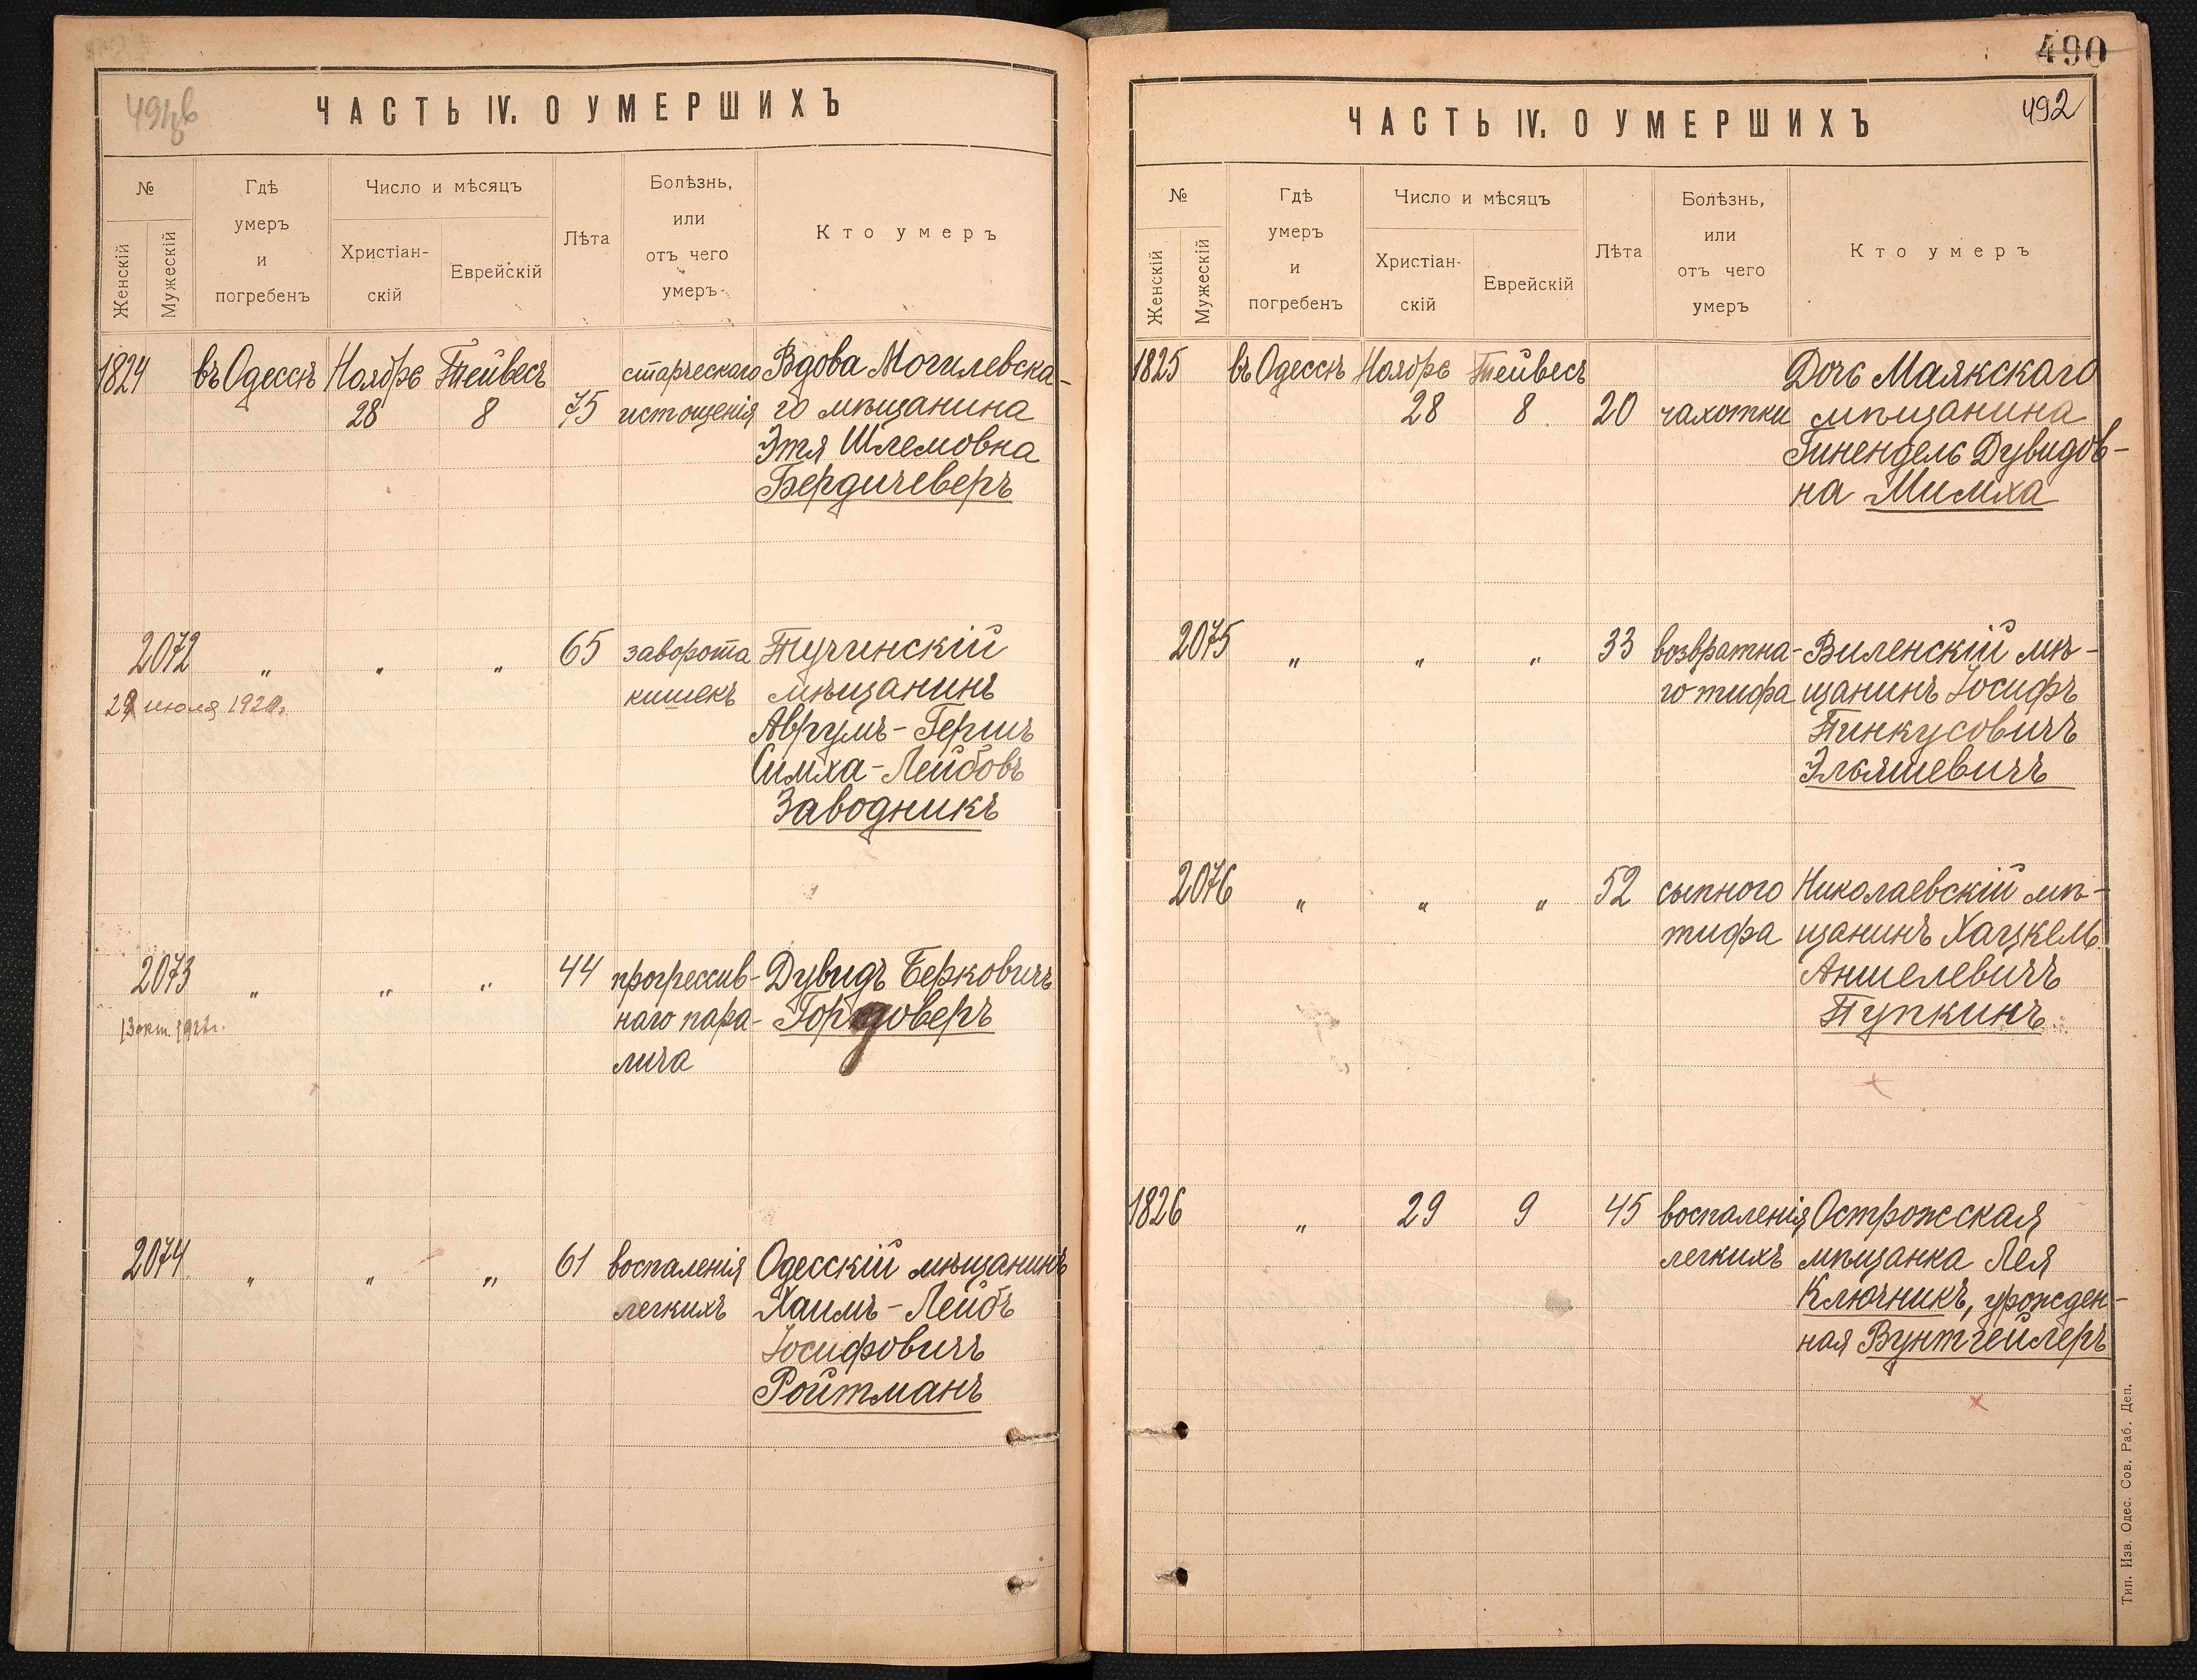 491 об
ЧАСТЬ IV. О УМЕРШИХЪ
№
Женскій
Мужескій
Гдѣ умеръ и погребенъ
Число и мѣсяцъ
Христіан-скій
Еврейскій
Лѣта
Болѣзнь, или отъ чего умеръ
Кто умеръ
1824 въ Одессѣ Ноябрь Тейвесъ старческаго Вдова Могилевска-
28 8 75 истощенія го мѣщанина
Этя Шлемовна
Бердичеверъ
2072 „ „ „ 65 заворота Тучинскій
29 июля 1920г. кишекъ мѣщанинъ
Аврумъ-Гершъ
Симха-Лейбовъ
Заводникъ
2073 „ „ „ 44 прогрессив- Дувидъ Берковичъ
13 окт. наго пара- Гордоверъ
лича
2074 „ „ „ 61 воспаленія Одесскій мѣщанинъ
легкихъ Хаимъ-Лейбъ
Іосифовичъ
Ройтманъ
490
492
ЧАСТЬ IV. О УМЕРШИХЪ
№
Женскій
Мужескій
Гдѣ умеръ и погребенъ
Число и мѣсяцъ
Христіан-скій
Еврейскій
Лѣта
Болѣзнь, или отъ чего умеръ
Кто умеръ
1825 въ Одессѣ Ноябрь Тейвесъ Дочь Маякскаго
28 8 20 чахотки мѣщанина
Гинендель Дувидов-
на Мимха
2075 „ „ „ 33 возвратна- Виленскій мѣ-
го тифа щанинъ Іосифъ
Пинкусовичъ
Эльяшевичъ
2076 „ „ „ 52 сыпного Николаевскій мѣ-
тифа щанинъ Хацкель
Аншелевичъ
Пупкинъ
1826 „ 29 9 45 воспаленія Острожская
легкихъ мѣщанка Лея
Ключникъ, урожден-
ная Вунтгейлеръ
Тип. Изв. Одес. Сов. Раб. Деп.